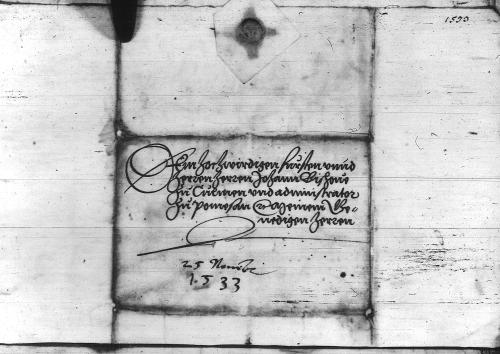 1533
Dem hochwirdigen fursten unnd
herren herren Johann Bischoue
zu Culmen und administrator
zu pomesan meinem Gne-
nedigen herren
25 Novembr
1533